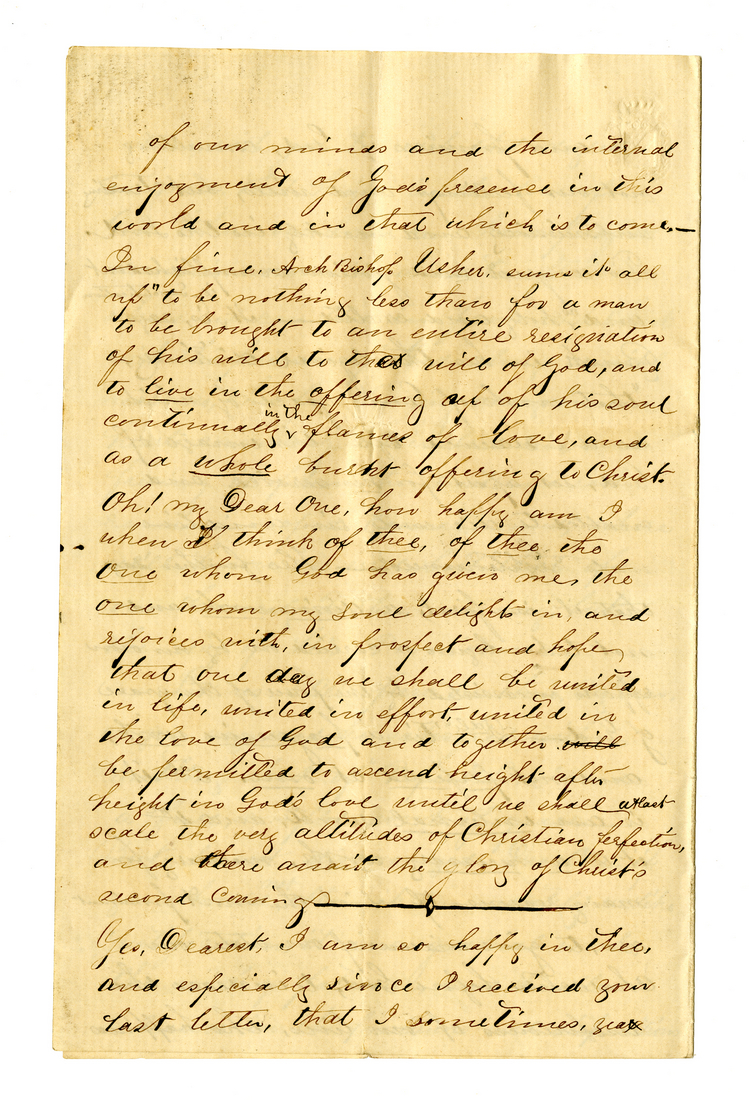 of our minds and the internal
enjoyment of God's presense in this
world and in that which is to come,—
In fine, Arch Bishop Usher, sums it all
up "to be nothing less than for a man
to be brought to an entire resignation
of his will to the will of God, and
to live in the offering up of his soul
continually in the flames of love, and
as a whole burnt offering to Christ.
Oh! my Dear One, how happy am I
when I think of thee, of thee, the
one whom God has given me, the
one whom my soul delights in, and
rejoices with, in prospect and hope,
that one day we shall be united
in life, united in effort, united in
the love of God and together will
be permitted to ascend height after
height in God's love until we shall at last
scale the very altitudes of Christian perfection,
and there await the glory of Christ's
second coming
Yes, Dearest, I am so happy in thee,
and especially since I received your
last letter, that I sometimes, yea